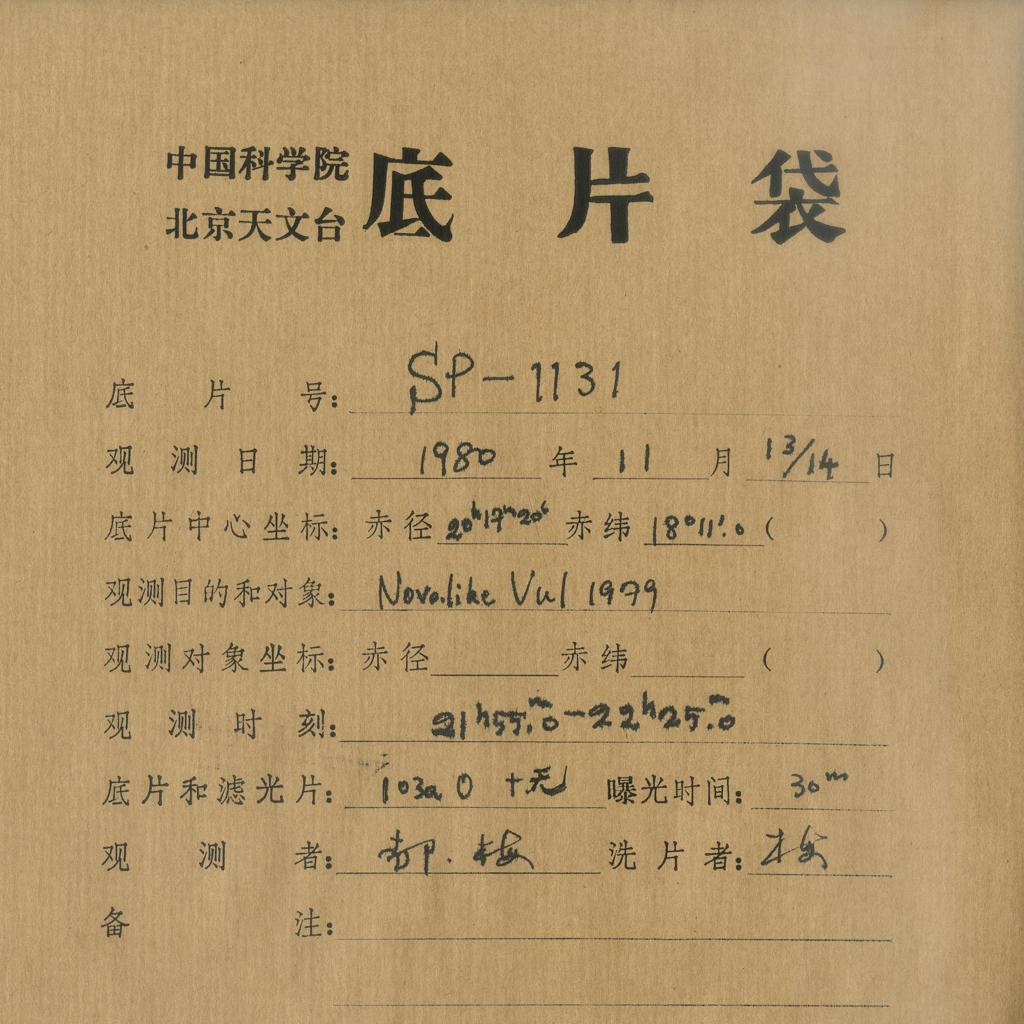 中国科学院
北京天文台
底片袋
底片号: SP-1131
观测日期: 1980 年 11 月 13/14 日
底片中心坐标: 赤径 20ʰ17ᵐ20ˢ 赤纬 18°11'.0 ( )
观测目的和对象: Nova.like Vul 1979
观测对象坐标: 赤径 赤纬 ( )
观测时刻: 21ʰ55ᵐ.0-22ʰ25ᵐ.0
底片和滤光片: 103a O +无 曝光时间: 30ᵐ
观测者: 郝.梅 洗片者: 梅
备注: